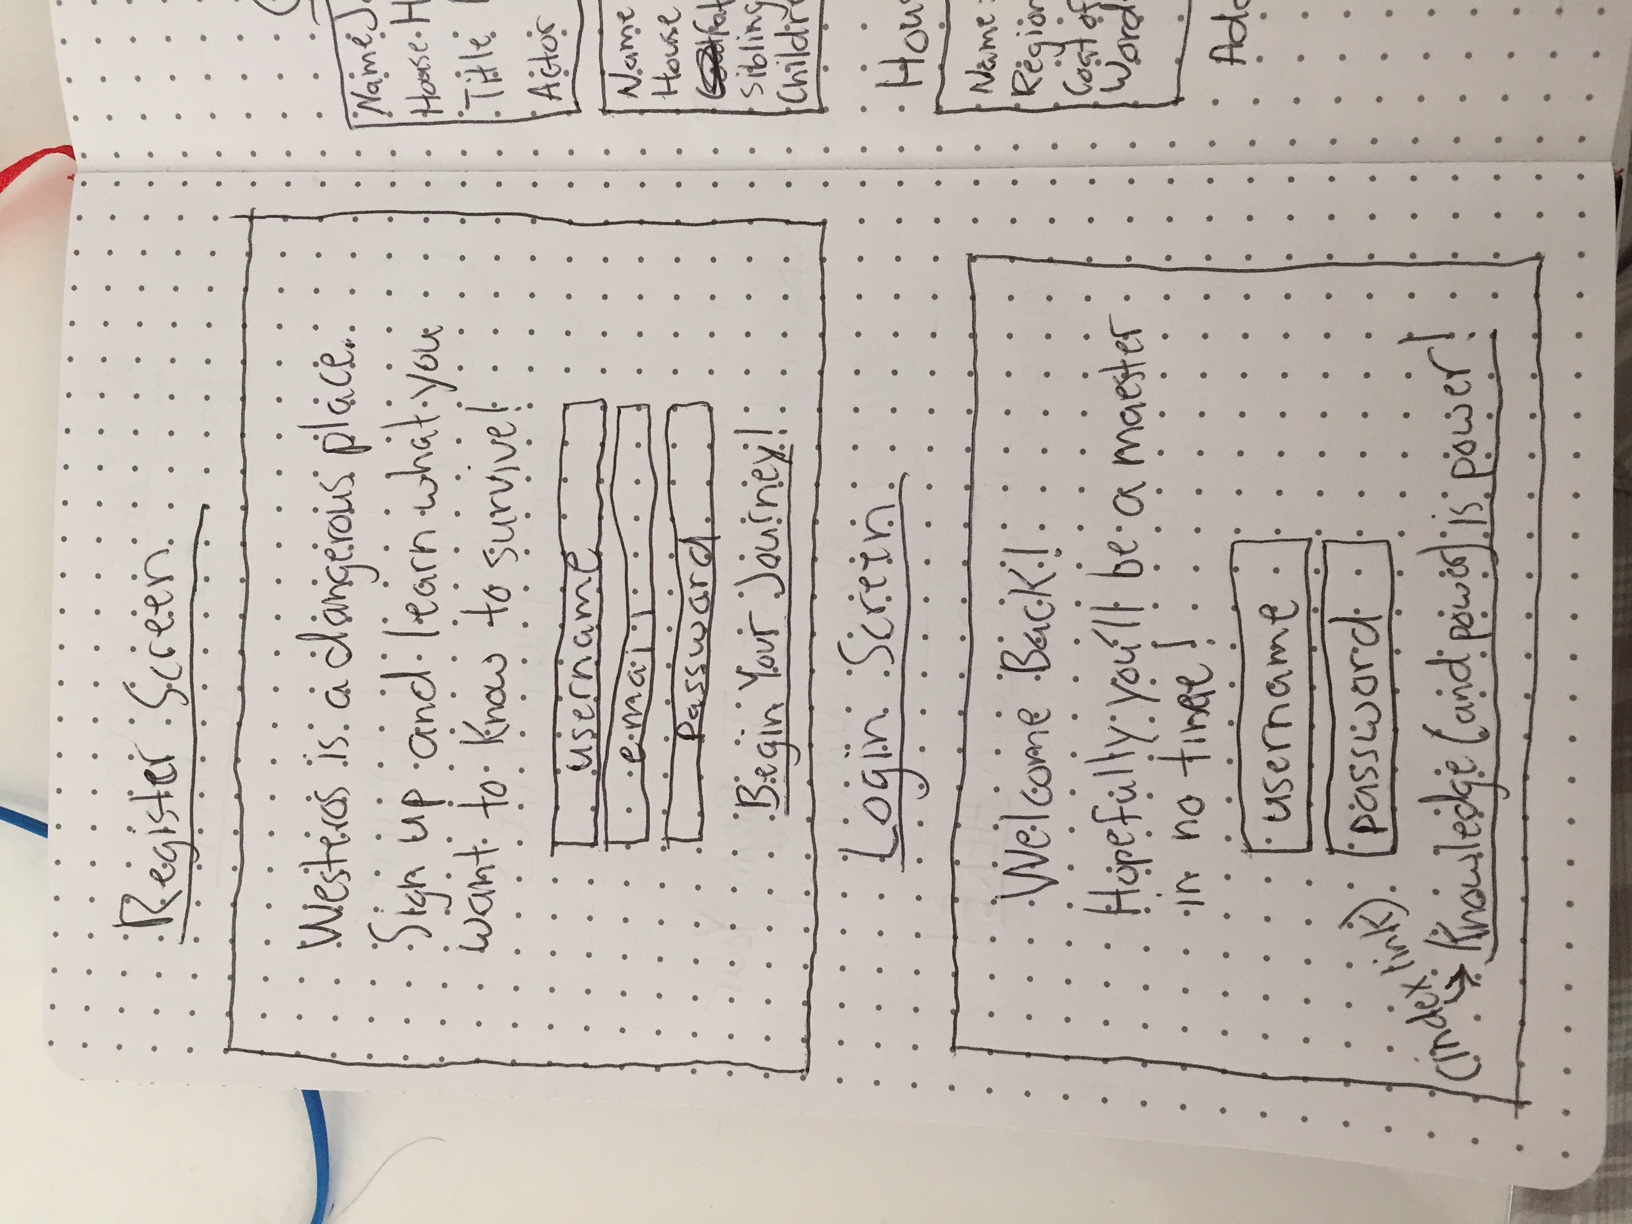 Register Screen
Westeros is a dangerous place.
Sign up and learn what you
want to know to survive!
username
email
password
Begin Your Journey!
Login Screen
Welcome Back!
Hopefully you'll be a maester
in no time!
username
password
(index link)
Knowledge (and power) is power!
Name
House
Title
Actor
Name
House
Name:
Coat of